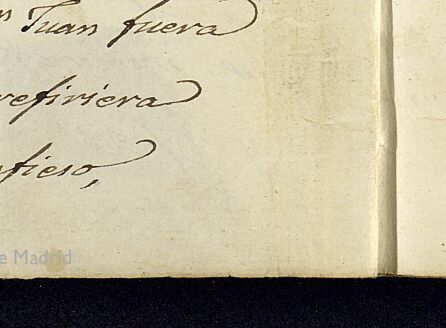 n Juan fuera
refiriera
nfieso,
e Madrid